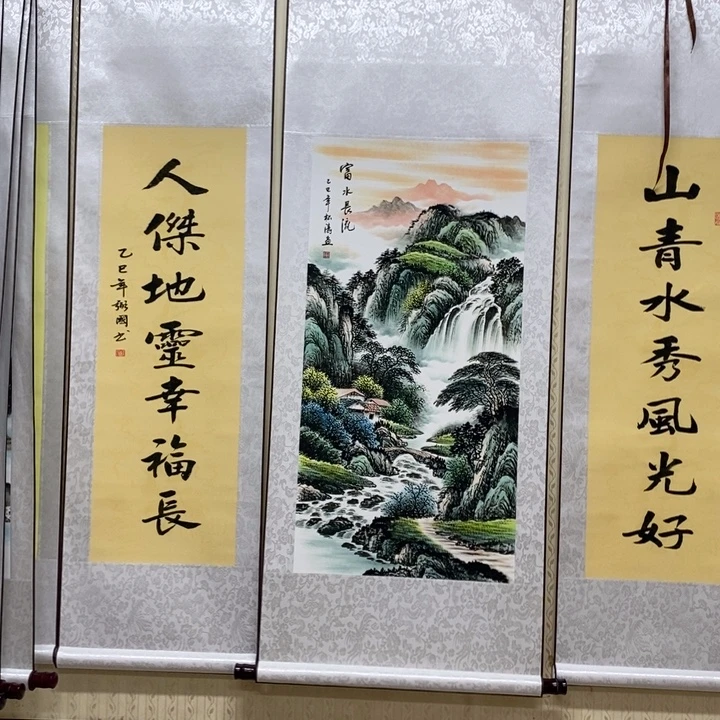 山青水秀風光好
富水長流
乙巳年
人傑地靈幸福長
乙巳年國书